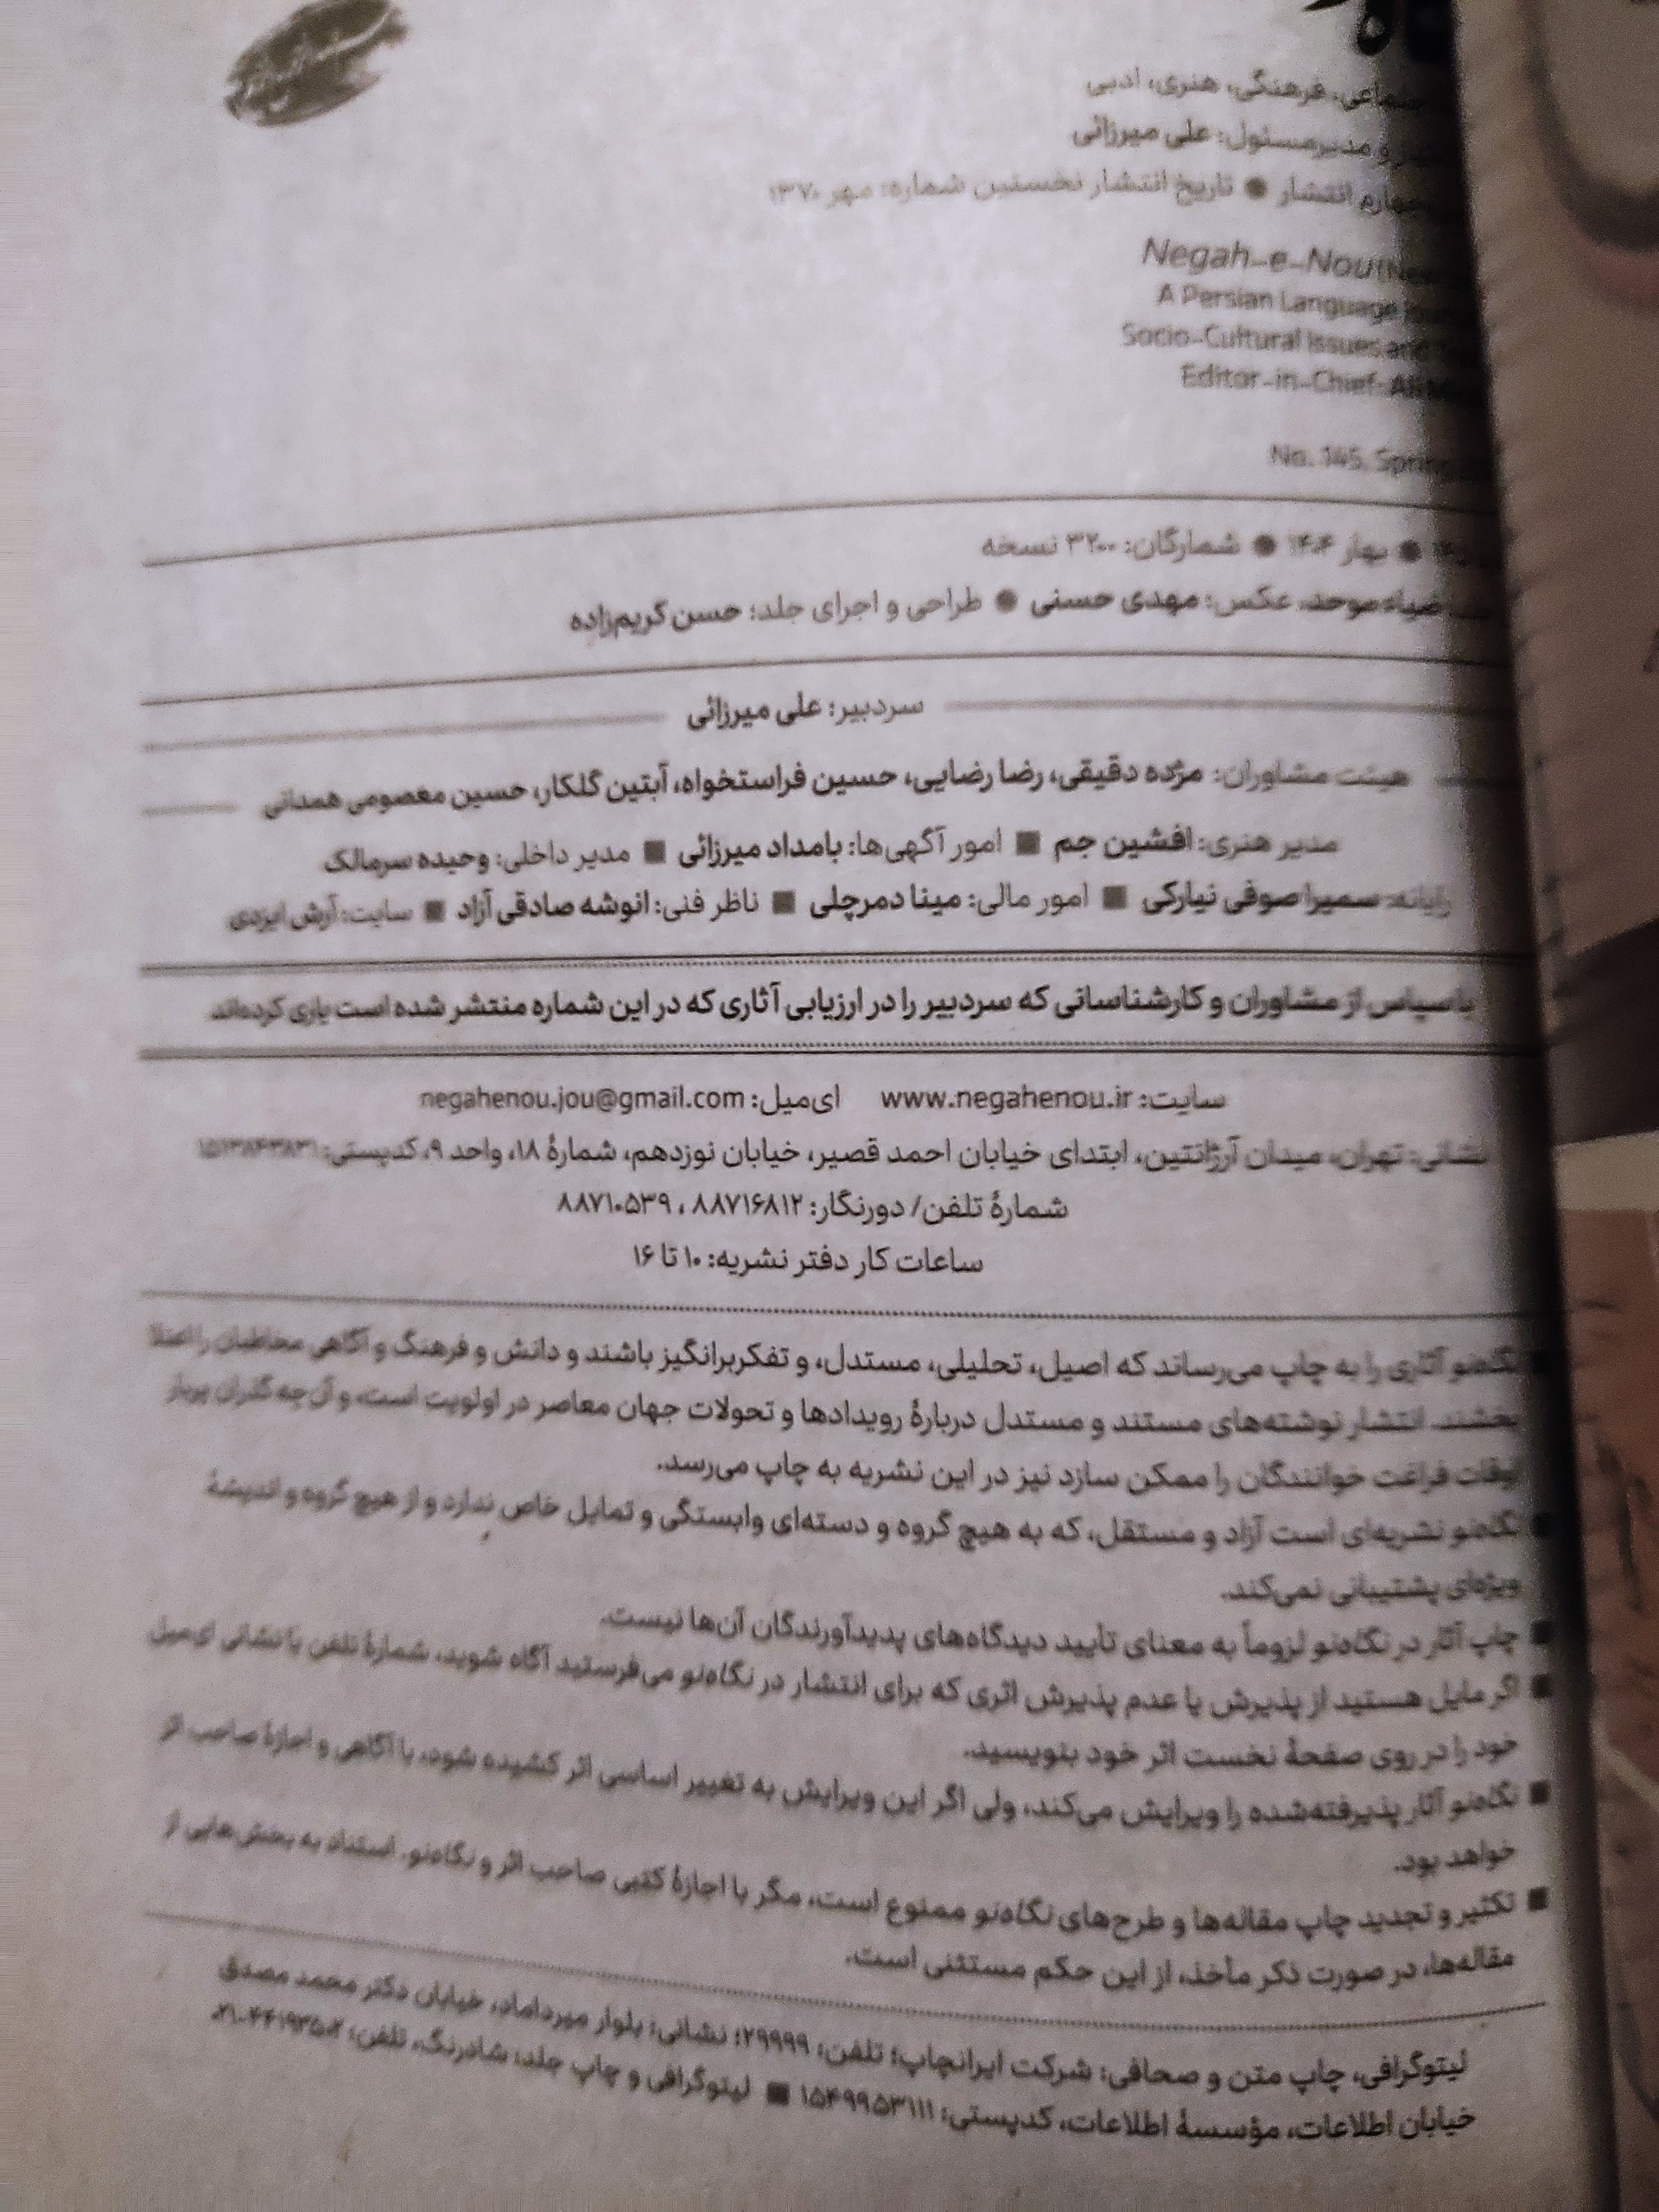 فرهنگی، هنری، ادبی
و مدیرمسئول: علی میرزائی
چهارم انتشار ● تاریخ انتشار نخستین شماره: مهر ۱۳۷۰
Negah-e-Nou
A Persian Language
Socio-Cultural Issues and
Editor-in-Chief: Ali
No. 145, Spring
● بهار ۱۴۰۴ ● شمارگان: ۳۲۰۰ نسخه
ضیاء موحد، عکس: مهدی حسنی ● طراحی و اجرای جلد: حسن کریم‌زاده
سردبیر: علی میرزائی
هیئت مشاوران: مژده دقیقی، رضا رضایی، حسین فراستخواه، آبتین گلکار، حسین معصومی همدانی
مدیر هنری: افشین جم ■ امور آگهی‌ها: بامداد میرزائی ■ مدیر داخلی: وحیده سرمالک
رایانه: سمیرا صوفی نیارکی ■ امور مالی: مینا دمرچلی ■ ناظر فنی: انوشه صادقی آزاد ■ سایت: آرش ایزدی
با سپاس از مشاوران و کارشناسانی که سردبیر را در ارزیابی آثاری که در این شماره منتشر شده است یاری کرده‌اند
سایت: www.negahenou.ir ای‌میل: negahenou.jou@gmail.com
نشانی: تهران، میدان آرژانتین، ابتدای خیابان احمد قصیر، خیابان نوزدهم، شمارهٔ ۱۸، واحد ۹، کدپستی: ۱۵۱۳۸۴۳۸۳۱
شمارهٔ تلفن/ دورنگار: ۸۸۷۱۶۸۱۲ ، ۸۸۷۱۰۵۳۹
ساعات کار دفتر نشریه: ۱۰ تا ۱۶
■ نگاه‌نو آثاری را به چاپ می‌رساند که اصیل، تحلیلی، مستدل، و تفکربرانگیز باشند و دانش و فرهنگ و آگاهی مخاطبان را اعتلا
بخشند. انتشار نوشته‌های مستند و مستدل دربارهٔ رویدادها و تحولات جهان معاصر در اولویت است، و آن‌چه گذران پربار
اوقات فراغت خوانندگان را ممکن سازد نیز در این نشریه به چاپ می‌رسد.
■ نگاه‌نو نشریه‌ای است آزاد و مستقل، که به هیچ گروه و دسته‌ای وابستگی و تمایل خاص ندارد و از هیچ گروه و اندیشهٔ
ویژه‌ای پشتیبانی نمی‌کند.
■ چاپ آثار در نگاه‌نو لزوماً به معنای تأیید دیدگاه‌های پدیدآورندگان آن‌ها نیست.
■ اگر مایل هستید از پذیرش یا عدم پذیرش اثری که برای انتشار در نگاه‌نو می‌فرستید آگاه شوید، شمارهٔ تلفن یا نشانی ای‌میل
خود را در روی صفحهٔ نخست اثر خود بنویسید.
■ نگاه‌نو آثار پذیرفته‌شده را ویرایش می‌کند، ولی اگر این ویرایش به تغییر اساسی اثر کشیده شود، با آگاهی و اجازهٔ صاحب اثر
خواهد بود.
■ تکثیر و تجدید چاپ مقاله‌ها و طرح‌های نگاه‌نو ممنوع است، مگر با اجازهٔ کتبی صاحب اثر و نگاه‌نو. استناد به بخش‌هایی از
مقاله‌ها، در صورت ذکر مأخذ، از این حکم مستثنی است.
لیتوگرافی، چاپ متن و صحافی: شرکت ایرانچاپ؛ تلفن: ۲۹۹۹۹؛ نشانی: بلوار میرداماد، خیابان دکتر محمد مصدق
خیابان اطلاعات، مؤسسهٔ اطلاعات، کدپستی: ۱۵۴۹۹۵۳۱۱۱ ■ لیتوگرافی و چاپ جلد: شادرنگ، تلفن: